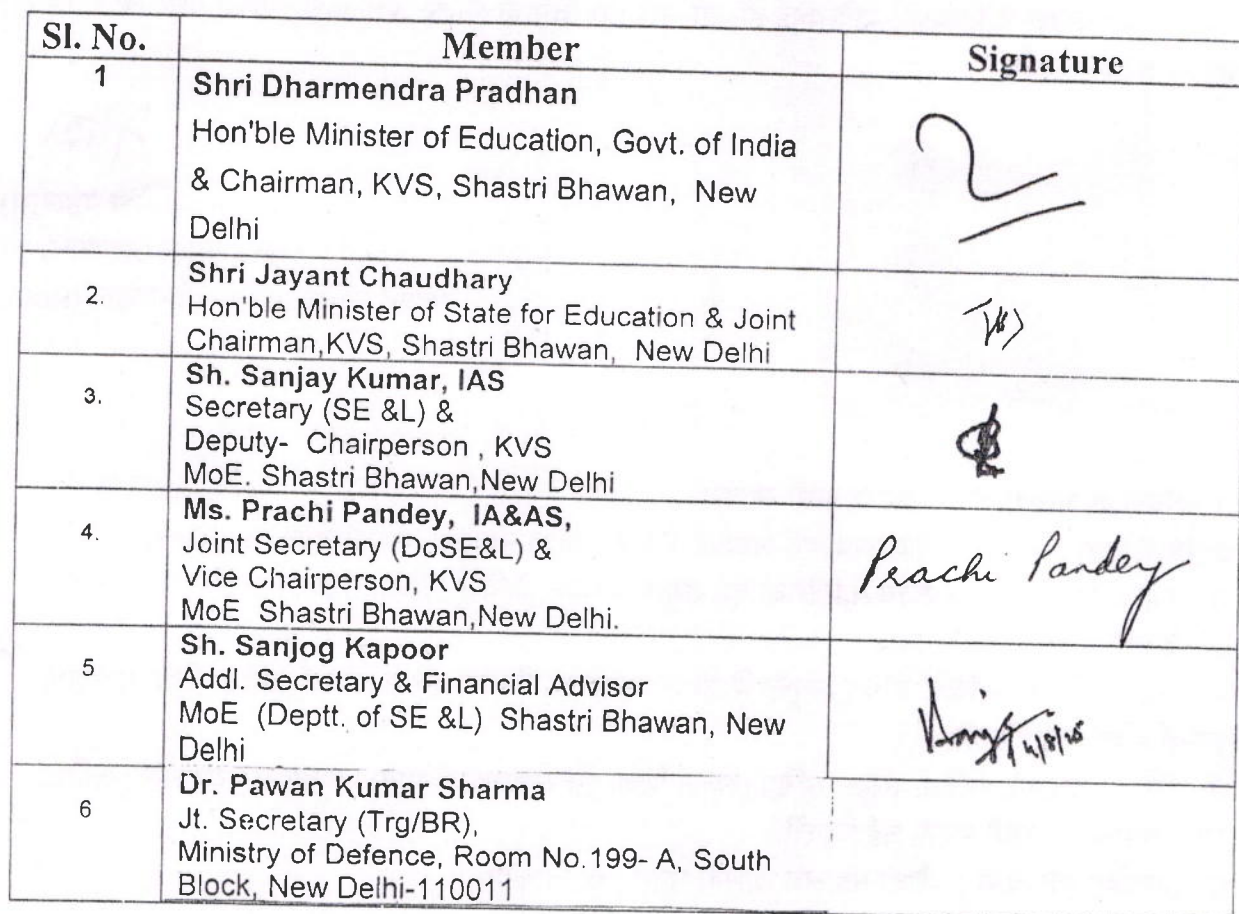 Sl. No. Member Signature
1 Shri Dharmendra Pradhan
Hon'ble Minister of Education, Govt. of India
& Chairman, KVS, Shastri Bhawan, New
Delhi
2. Shri Jayant Chaudhary
Hon'ble Minister of State for Education & Joint
Chairman,KVS, Shastri Bhawan, New Delhi
3. Sh. Sanjay Kumar, IAS
Secretary (SE &L) &
Deputy- Chairperson , KVS
MoE. Shastri Bhawan,New Delhi
4. Ms. Prachi Pandey, IA&AS,
Joint Secretary (DoSE&L) &
Vice Chairperson, KVS
MoE Shastri Bhawan,New Delhi.
Prachi Pandey
5 Sh. Sanjog Kapoor
Addl. Secretary & Financial Advisor
MoE (Deptt. of SE &L) Shastri Bhawan, New
Delhi
6 Dr. Pawan Kumar Sharma
Jt. Secretary (Trg/BR),
Ministry of Defence, Room No.199- A, South
Block, New Delhi-110011